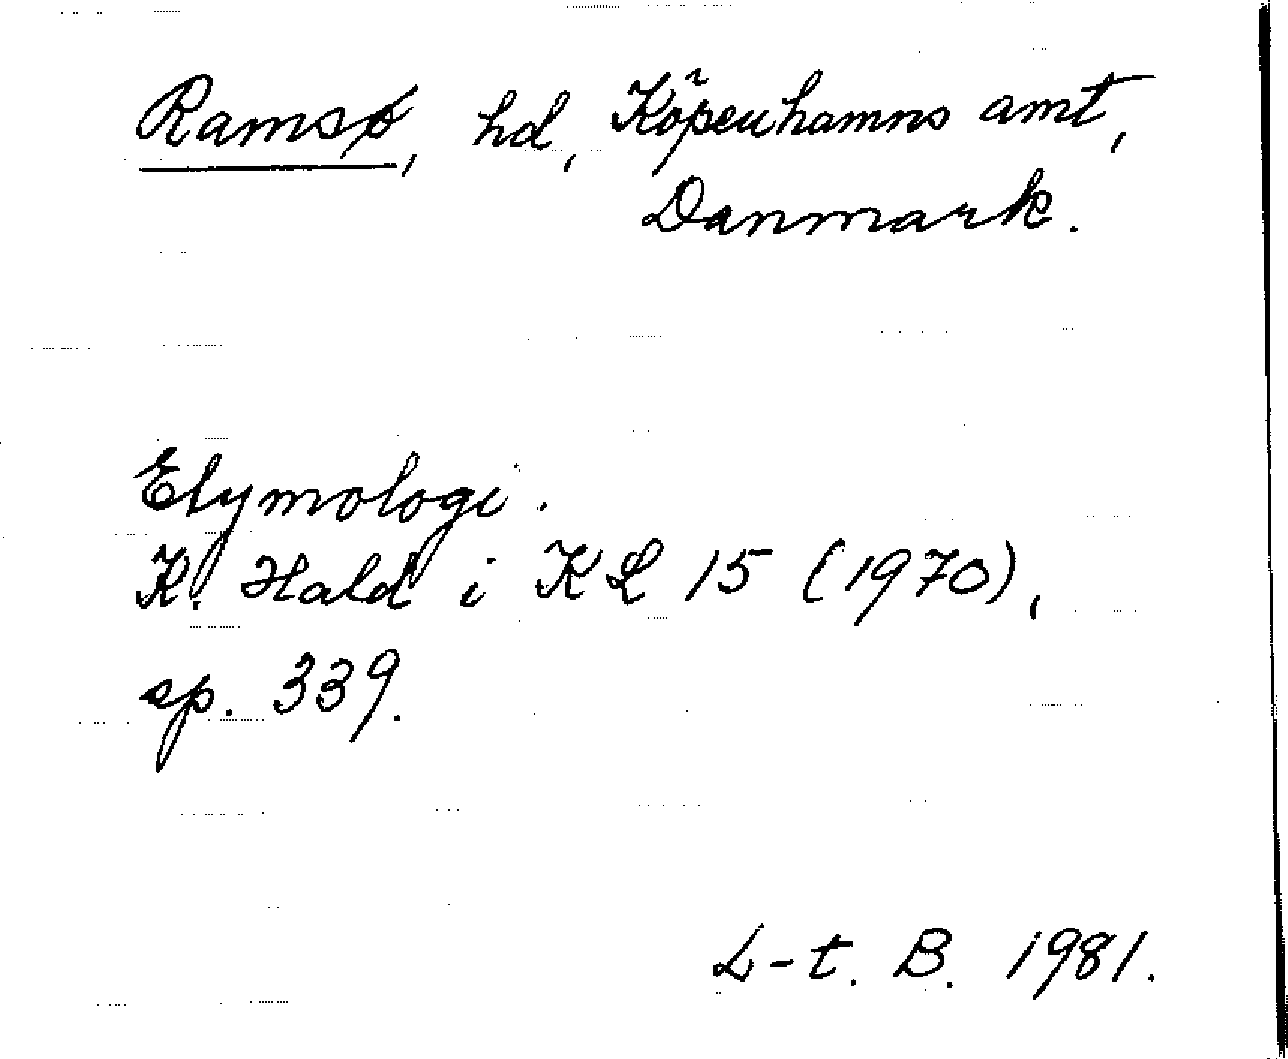 Ramsø, hd, Köpenhamns amt,
Danmark.
Etymologi.
K. Hald i KL 15 (1970),
sp. 339.
L-t. B. 1981.